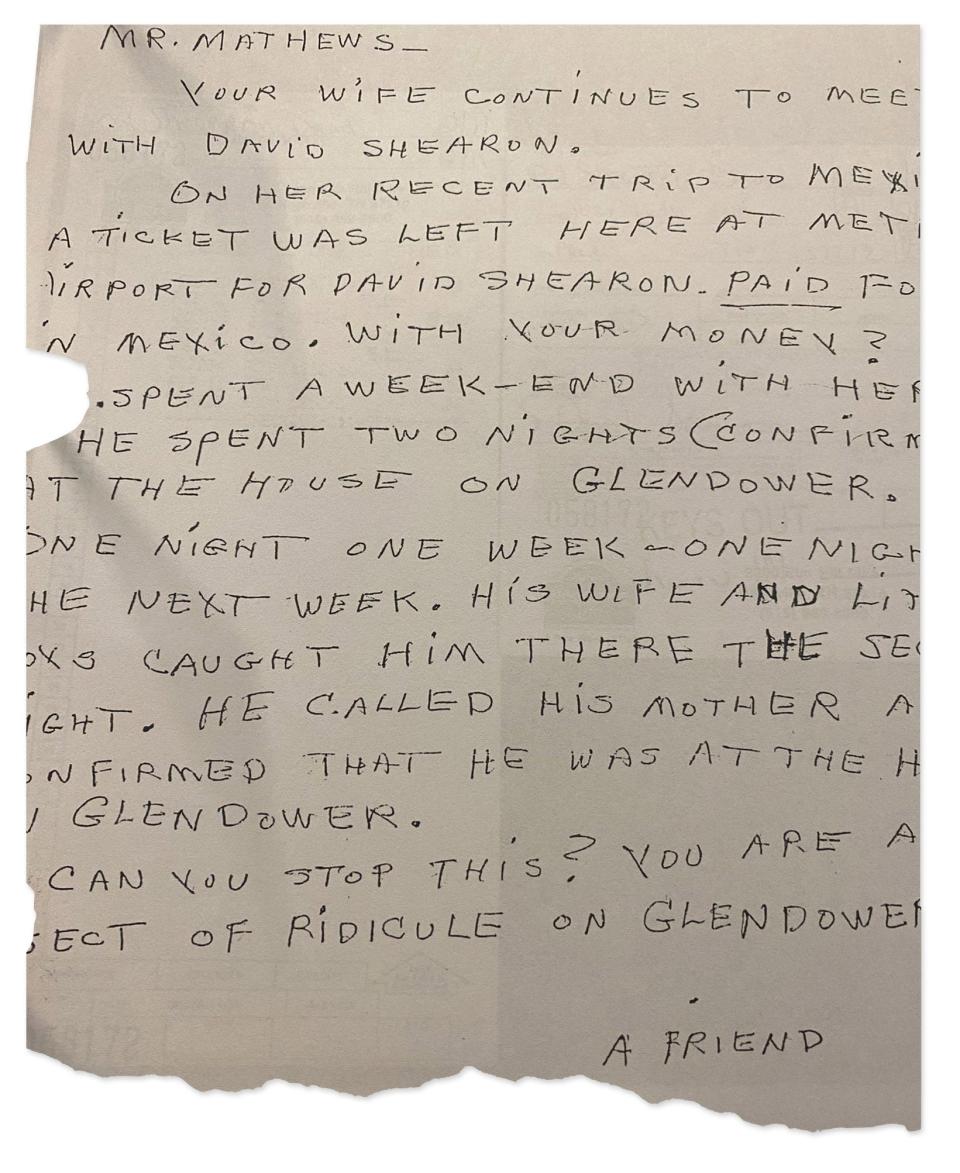 MR. MATHEWS—
YOUR WIFE CONTINUES TO MEE
WITH DAVID SHEARON.
ON HER RECENT TRIP TO MEXI
A TICKET WAS LEFT HERE AT MET
AIRPORT FOR DAVID SHEARON. PAID FO
IN MEXICO. WITH YOUR MONEY?
.SPENT A WEEK-END WITH HER
HE SPENT TWO NIGHTS (CONFIRM
AT THE HOUSE ON GLENDOWER.
ONE NIGHT ONE WEEK - ONE NIGH
HE NEXT WEEK. HIS WIFE AND LIT
OYS CAUGHT HIM THERE THE SEC
IGHT. HE CALLED HIS MOTHER A
ONFIRMED THAT HE WAS AT THE H
N GLENDOWER.
CAN YOU STOP THIS? YOU ARE A
JECT OF RIDICULE ON GLENDOWER
A FRIEND